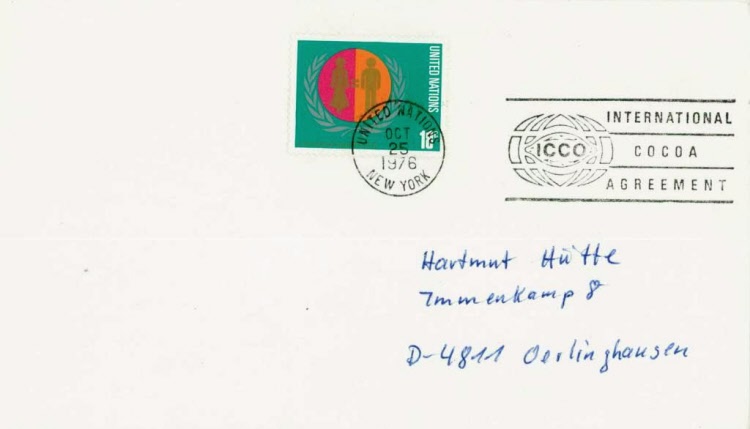 UNITED NATIONS
UNITED NATIONS
OCT
25
1976
NEW YORK
INTERNATIONAL
ICCO
COCOA
AGREEMENT
Hartmut Hütte
Immenkamp 8
D-4811 Oerlinghausen